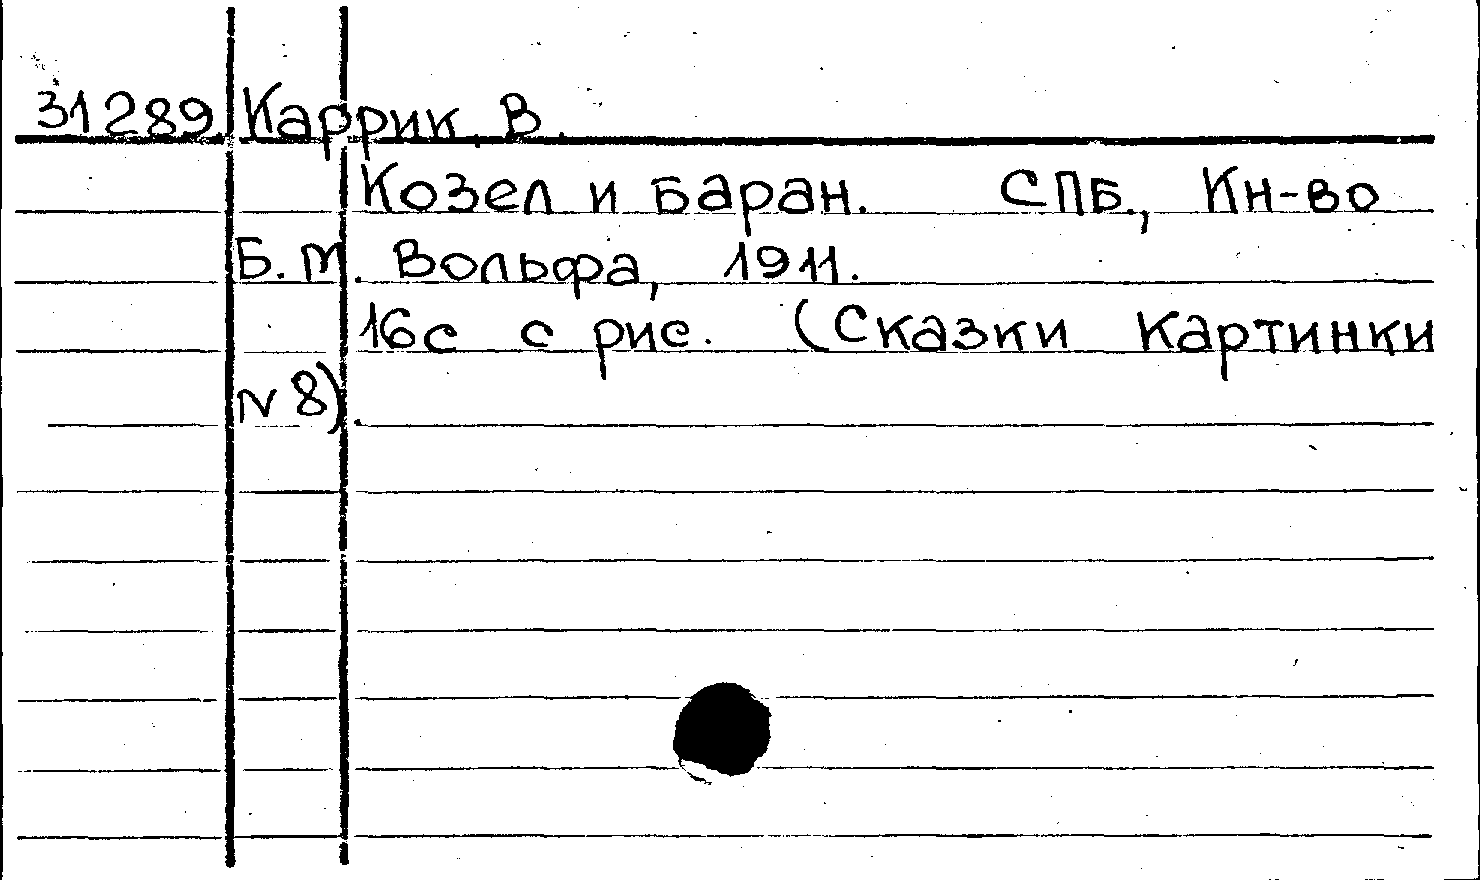 31289. Каррик, В.
Козел и баран. СПБ., Кн-во
Б.М. Вольфа, 1911.
16с с рис. (Сказки картинки
N 8).